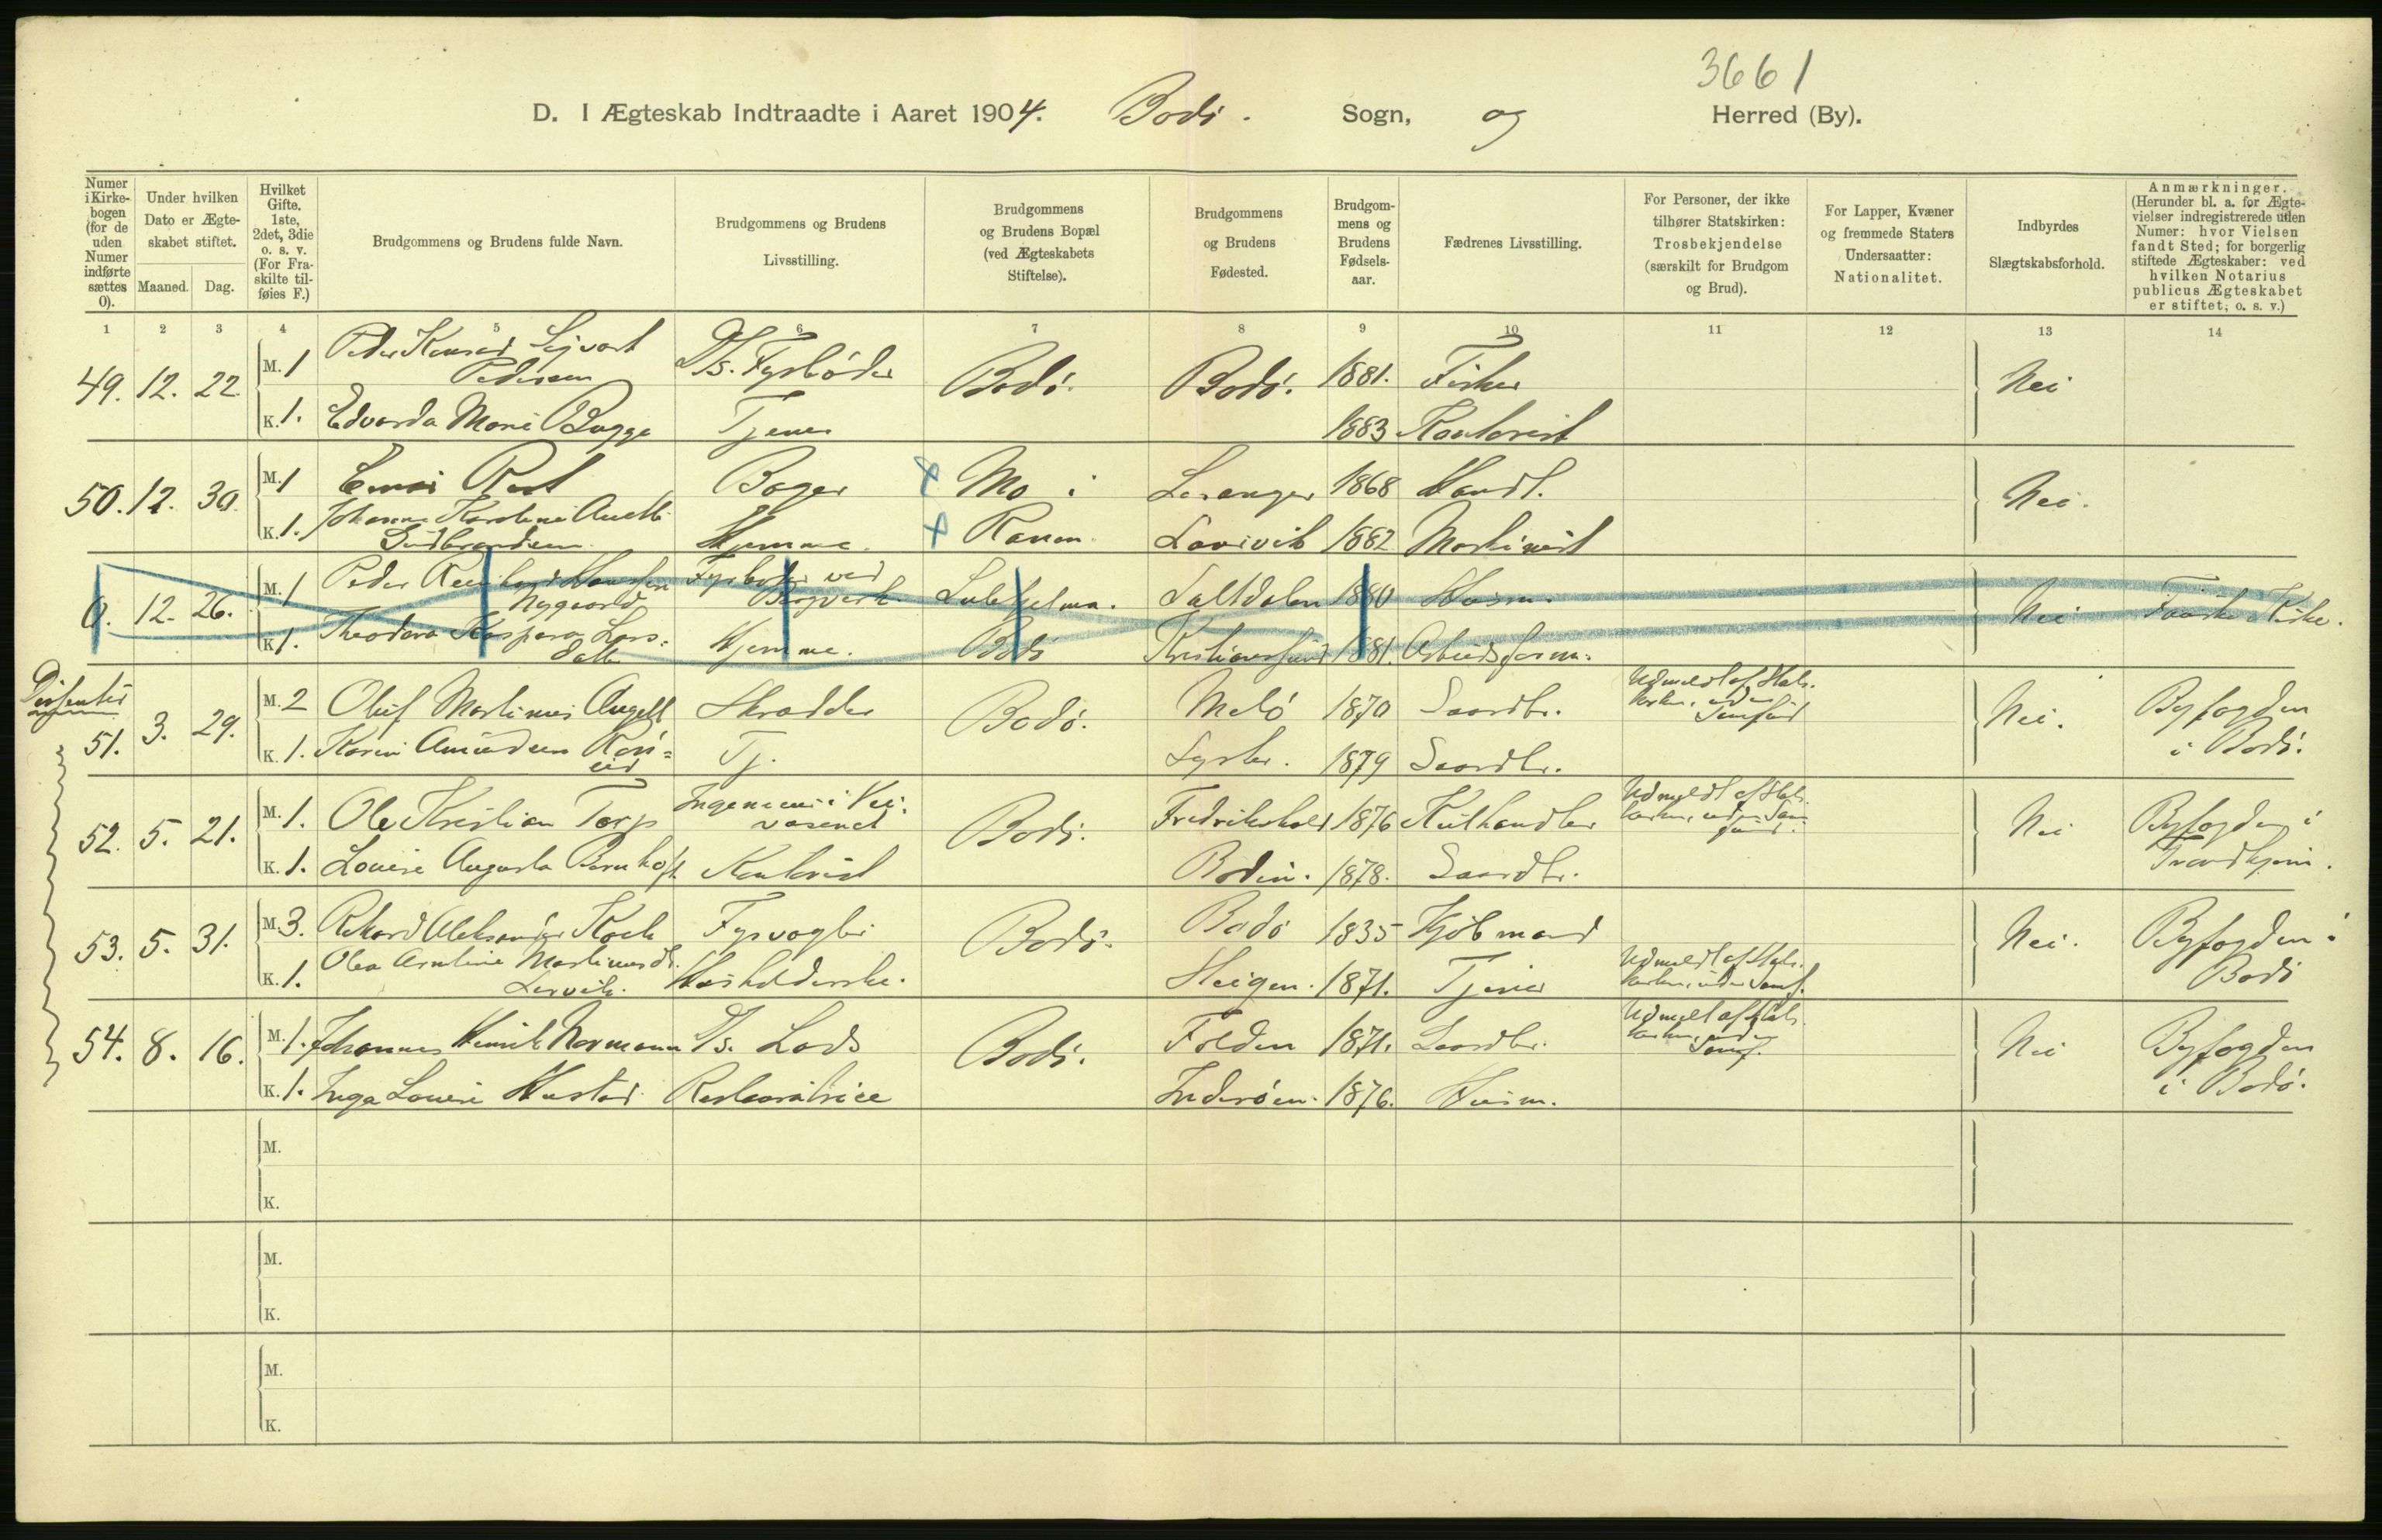 3661
D. I Ægteskab Indtraadte i Aaret 1904. Bodø. Sogn, og Herred (By).
Numer i Kirkebogen (for de uden Numer indførte sættes 0).
Under hvilken Dato er Ægteskabet stiftet.
Maaned. Dag.
Hvilket Gifte. 1ste, 2det, 3die o. s. v. (For Fraskilte tilføies F.)
Brudgommens og Brudens fulde Navn.
Brudgommens og Brudens Livsstilling.
Brudgommens og Brudens Bopæl (ved Ægteskabets Stiftelse).
Brudgommens og Brudens Fødested.
Brudgommens og Brudens Fødselsaar.
Fædrenes Livsstilling.
For Personer, der ikke tilhører Statskirken: Trosbekjendelse (særskilt for Brudgom og Brud).
For Lapper, Kvæner og fremmede Staters Undersaatter: Nationalitet.
Indbyrdes Slægtskabsforhold.
Anmærkninger. (Herunder bl. a. for Ægtevielser indregistrerede uden Numer: hvor Vielsen fandt Sted; for borgerlig stiftede Ægteskaber: ved hvilken Notarius publicus Ægteskabet er stiftet; o. s. v.)
1 2 3 4 5 6 7 8 9 10 11 12 13 14
49. 12. 22. M. 1 Peder Konrad Sejvart Pedersen Ds. Fyrbøder Bodø. Bodø. 1881. Fisker Nei
K. 1. Edvarda Marie Bugge Tjener 1883 Kontorist
50. 12. 30. M. 1 Bager Mo i Levanger 1868 Handl. Nei.
K. 1. Johanna Karoline Gudbrandsen Hjemme. Ranen Larvik 1882 Maskinist
0. 12. 26. M. 1 Peder Hansen Nygaard Fyrbøder ved Bergverk. Saltdalen 1880 Husm. Nei Kirke.
K. 1. Theodora Kaspara Larsdatter Hjemme. Bodø Kristianssund 1881. Arbeidsform.
Dissenter
51. 3. 29. M. 2 Oluf Martinus Angell Skrædder Bodø. Melø 1870 Gaardbr. Udmeldt af Statskirken, uden Samfund Nei. Byfogden i Bodø.
K. 1. Karen Amundsen Tj. 1879 Gaardbr.
52. 5. 21. M. 1. Ole Kristian Torp Ingeniør i Veivæsenet Bodø. Fredrikshald 1876 Kulhandler Udmeldt af Statskirken, uden Samfund. Nei Byfogden i Trondhjem.
K. 1. Louise Augusta Bernhoft Kontorist Bodin. 1878. Gaardbr.
53. 5. 31. M. 3. Rikard Aleksander Koch Fyrvogter Bodø. Bodø 1835 Kjøbmand Nei. Byfogden i Bodø
K. 1. Olea Arntine Martinusdt. Lervik. Husholderske. Steigen. 1871. Tjener Udmeldt af Statskirken, uden Samf.
54. 8. 16. M. 1. Johannes Henrik Normann Ds. Lods Bodø. Folden 1871. Gaardbr. Udmeldt af Statskirken, uden Samf. Nei Byfogden i Bodø.
K. 1. Inga Louise Hustad Restauratrice Inderøen. 1876. Husm.
M.
K.
M.
K.
M.
K.